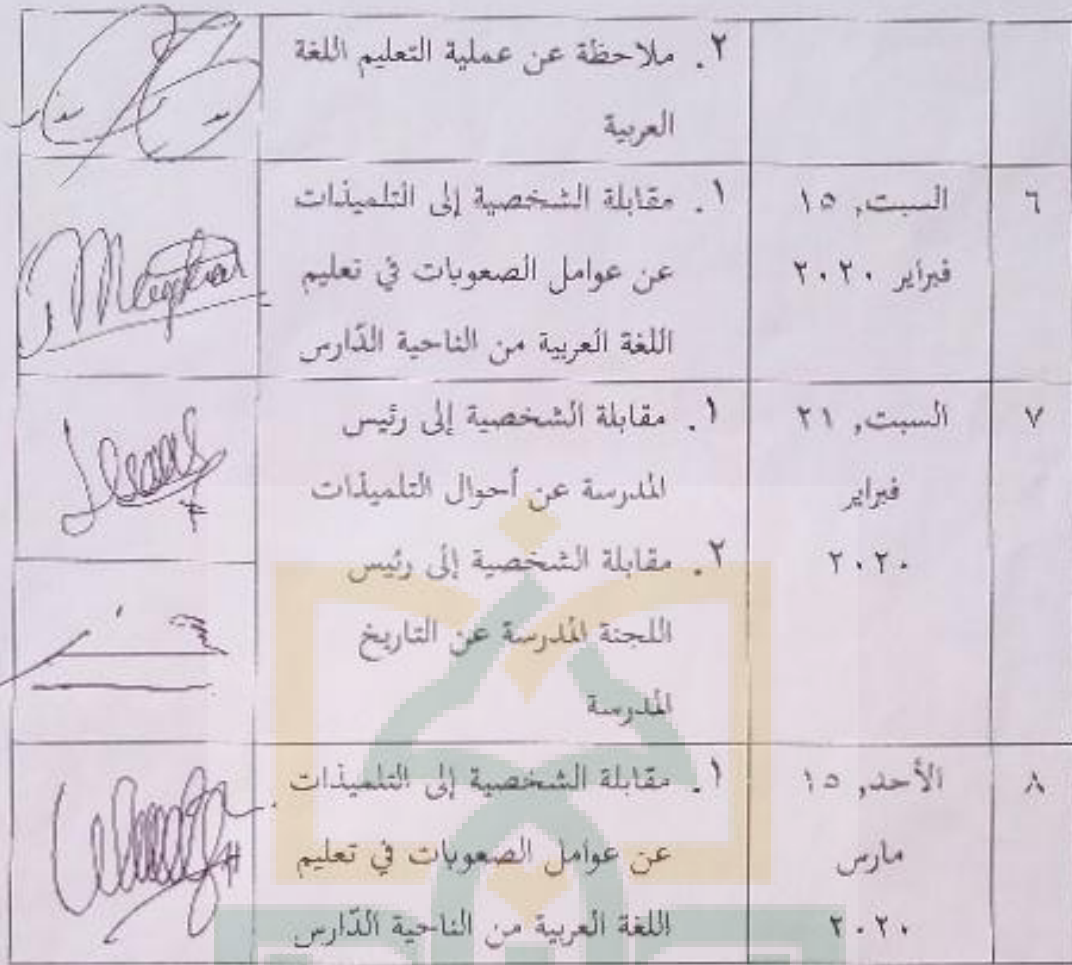 ٢. ملاحظة عن عملية التعليم اللغة
العربية
٦
السبت, ١٥
فبراير ٢٠٢٠
١. مقابلة الشخصية إلى التلميذات
عن عوامل الصعوبات في تعليم
اللغة العربية من الناحية الدّارس
٧
السبت, ٢١
فبراير
٢٠٢٠
١. مقابلة الشخصية إلى رئيس
المدرسة عن أحوال التلميذات
٢. مقابلة الشخصية إلى رئيس
اللجنة المدرسة عن التاريخ
المدرسة
٨
الأحد, ١٥
مارس
٢٠٢٠
١. مقابلة الشخصية إلى التلميذات
عن عوامل الصعوبات في تعليم
اللغة العربية من الناحية الدّارس